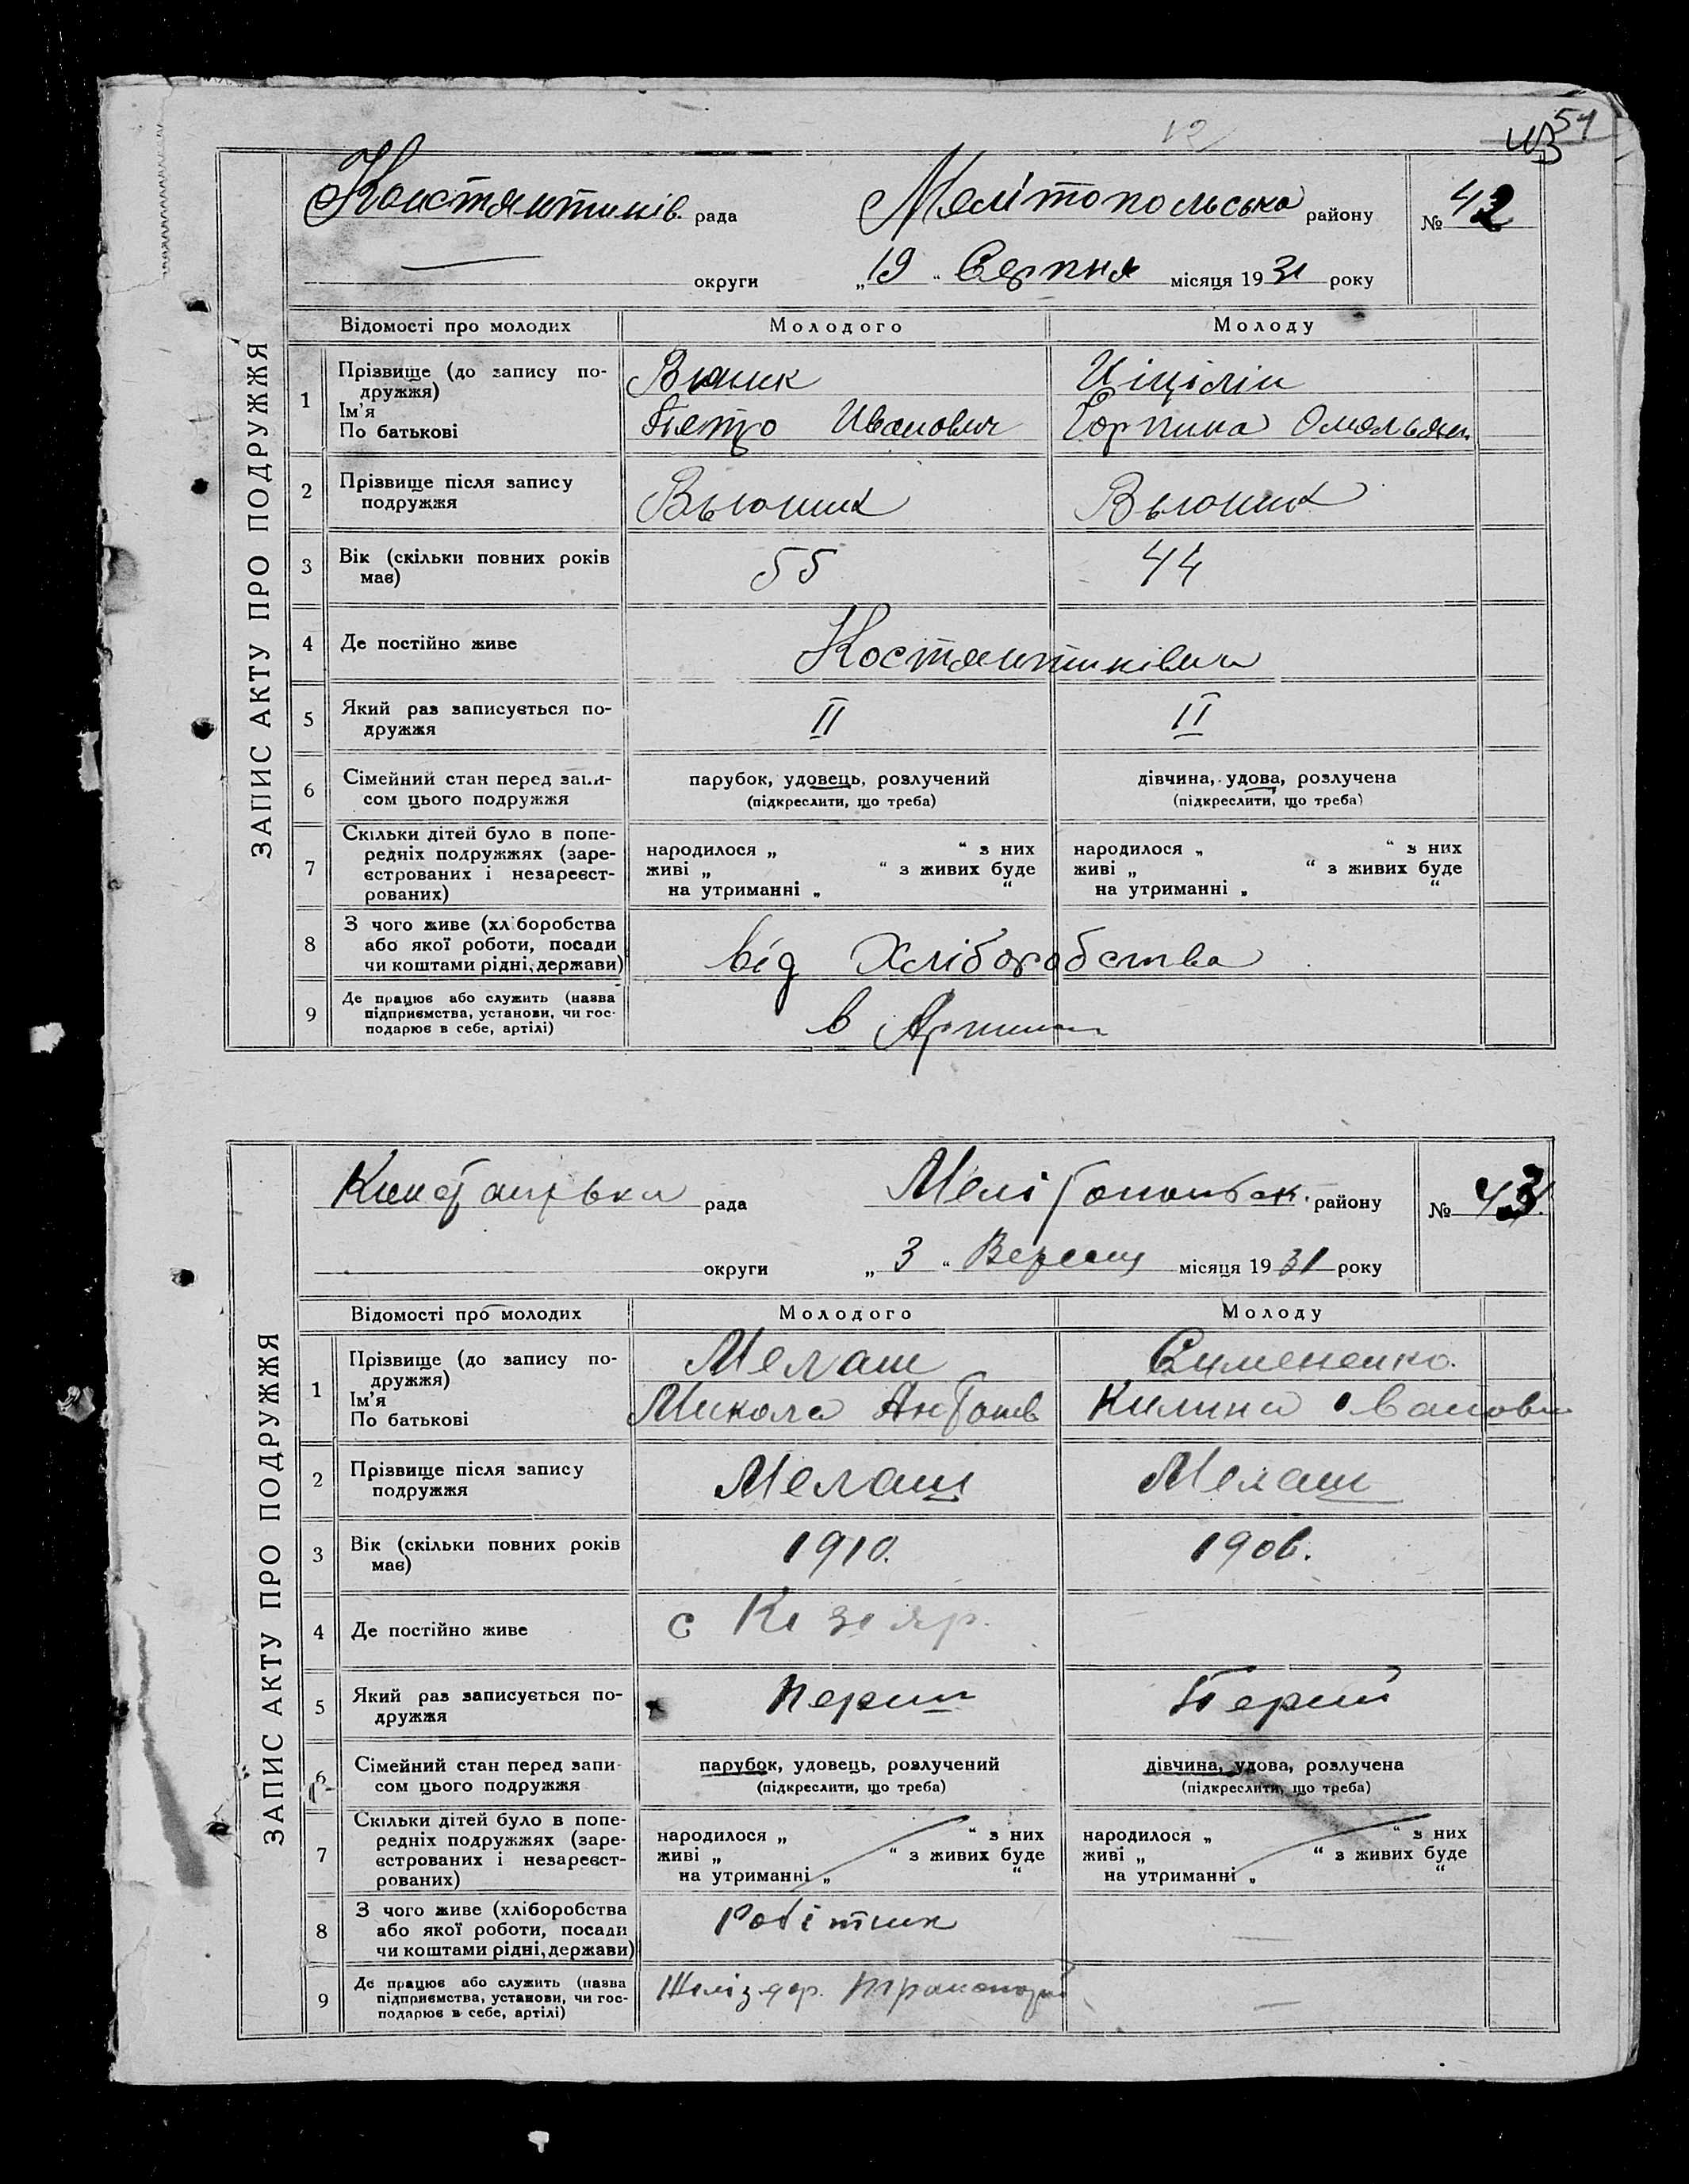 12
54
ЗАПИС АКТУ ПРО ПОДРУЖЖЯ
Констянтинів. рада Мелітопольська району № 42
округи „19“ Серпня місяця 1931 року
Відомості про молодих Молодого Молоду
1 Прізвище (до запису подружжя) Вюник Ціцілін
Ім'я По батькові Петро Иванович Горпина Омельян
2 Прізвище після запису подружжя Вьюник Вьюник
3 Вік (скільки повних років має) 55 44
4 Де постійно живе Костянтинівка
5 Який раз записується подружжя II II
6 Сімейний стан перед записом цього подружжя парубок, удовець, розлучений дівчина, удова, розлучена
(підкреслити, що треба) (підкреслити, що треба)
7 Скільки дітей було в попередніх подружжях (зареєстрованих і незареєстрованих)
народилося „ “ з них народилося „ “ з них
живі „ “ з живих буде живі „ “ з живих буде
на утриманні „ “ на утриманні „ “
8 З чого живе (хліборобства або якої роботи, посади чи коштами рідні, держави) від Хліборобства
9 Де працює або служить (назва підприємства, установи, чи господарює в себе, артілі) в
ЗАПИС АКТУ ПРО ПОДРУЖЖЯ
рада району № 43
округи „3“ місяця 1931 року
Відомості про молодих Молодого Молоду
1 Прізвище (до запису подружжя) Мелаш Симененко.
Ім'я По батькові Микола Антонів Килина
2 Прізвище після запису подружжя Мелаш Мелаш
3 Вік (скільки повних років має) 1910. 1906.
4 Де постійно живе с Кізіяр.
5 Який раз записується подружжя Перши Перший
6 Сімейний стан перед записом цього подружжя парубок, удовець, розлучений дівчина, удова, розлучена
(підкреслити, що треба) (підкреслити, що треба)
7 Скільки дітей було в попередніх подружжях (зареєстрованих і незареєстрованих)
народилося „ “ з них народилося „ “ з них
живі „ “ з живих буде живі „ “ з живих буде
на утриманні „ “ на утриманні „ “
8 З чого живе (хліборобства або якої роботи, посади чи коштами рідні, держави) Робітник
9 Де працює або служить (назва підприємства, установи, чи господарює в себе, артілі) Желіздор. транспорт